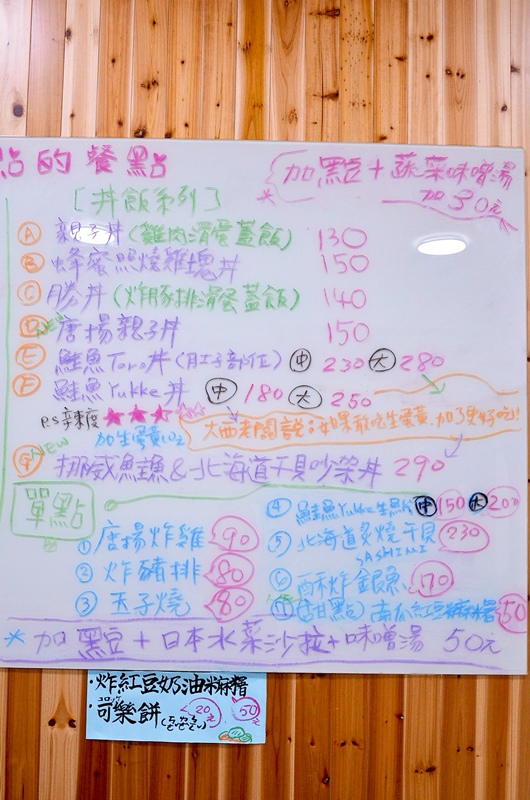 點的餐點
加黑豆+蔬菜味噌湯
*加30元
[丼飯系列]
A 親子丼(雞肉滑蛋蓋飯) 130
B 蜂蜜照燒雞塊丼 150
C 勝丼(炸豚排滑蛋蓋飯) 140
D NEW 唐揚親子丼 150
E 鮭魚Toro丼(肚子部位) 中230 大280
F 鮭魚Yukke丼 中180 大250
P.S辣度★★★☆☆
加生蛋黃10元
大西老闆說:如果敢吃生蛋黃.加了更好吃!
NEW
G 挪威鮭魚&北海道干貝吵架丼 290
單點
① 唐揚炸雞 90
② 炸豬排 80
③ 玉子燒 80
④ 鮭魚Yukke生魚片 中150 大200
⑤ 北海道炙燒干貝 230
SASHIMI
⑥ 酥炸銀魚 170
⑦ 甘日點 南瓜紅豆麻糬 50
*加黑豆+日本水菜沙拉+味噌湯 50元
·炸紅豆奶油麻糬 50元
·可樂餅 20元